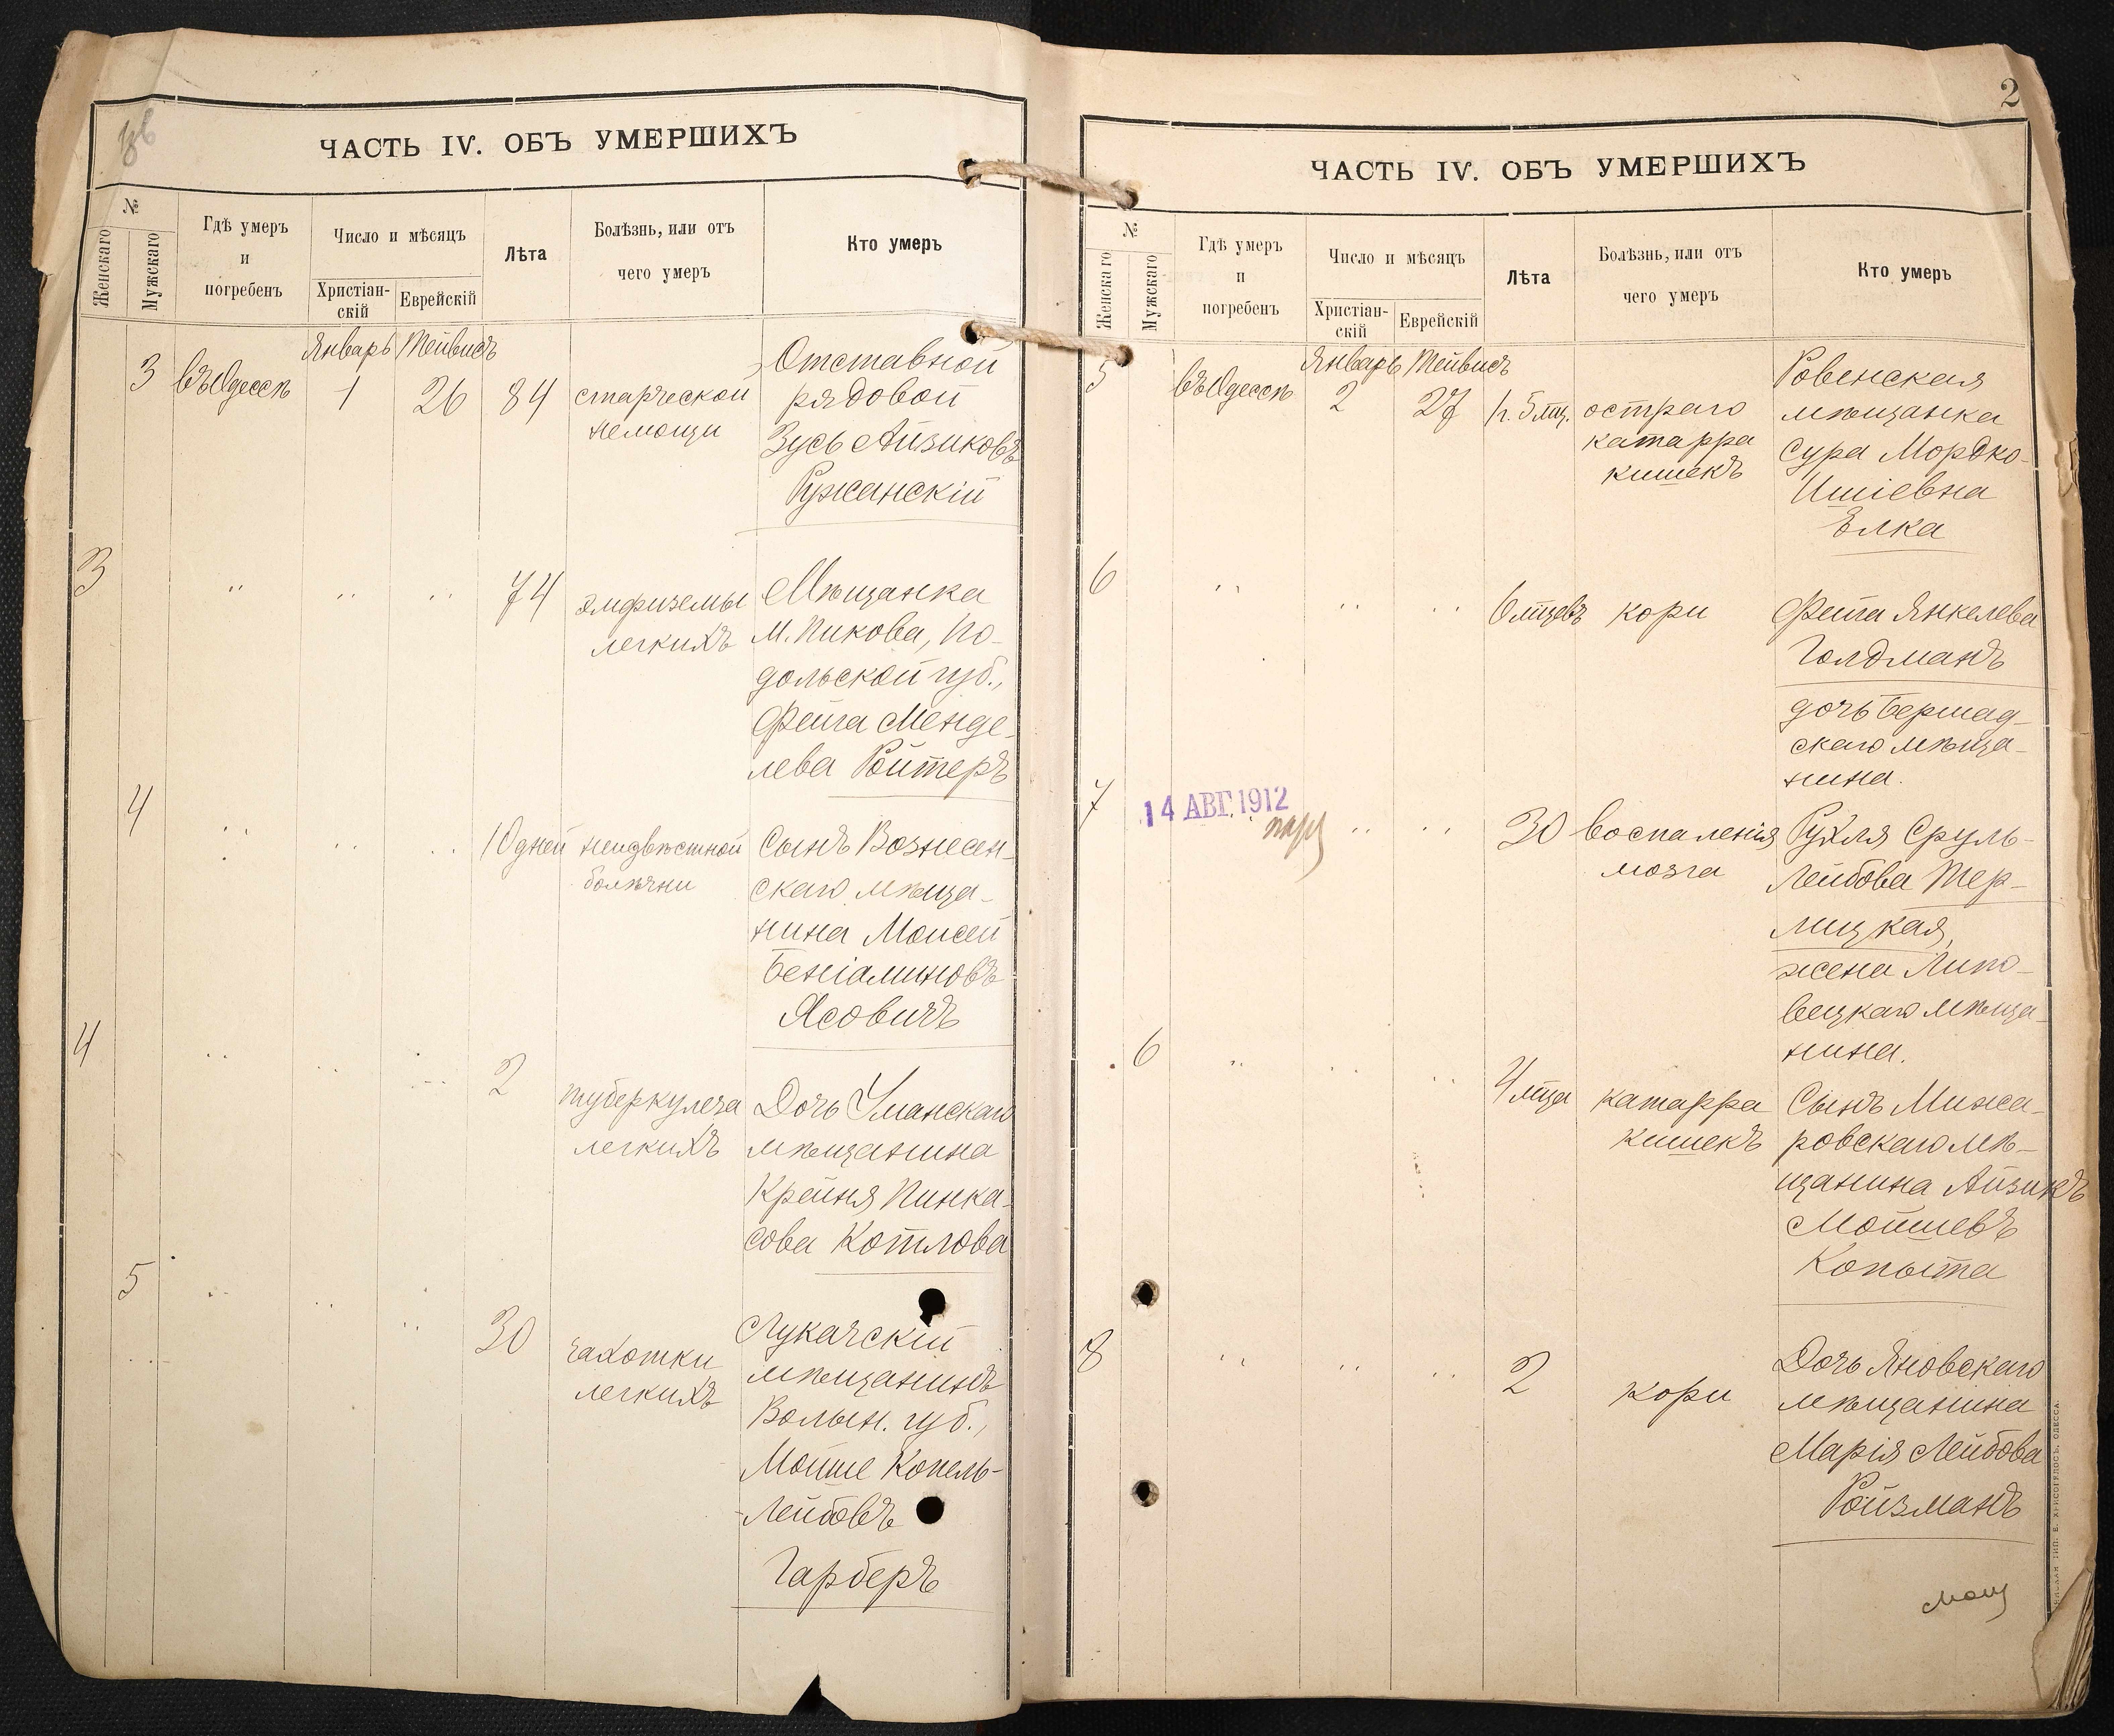 ЧАСТЬ IV. ОБЪ УМЕРШИХЪ
№
Женскаго
Мужскаго
Гдѣ умеръ
и
погребенъ
Число и мѣсяцъ
Христіан-
скій
Еврейскій
Лѣта
Болѣзнь, или отъ
чего умеръ
Кто умеръ
Январь Тейвисъ
3 въ Одессѣ 1 26 84 старческой
немощи
Отставной
рядовой
Зусь Айзиковъ
Ружанскій
3 " " " 74 эмфиземы
легкихъ
Мѣщанка
м. Пикова, По-
дольской губ.,
Фейга Менде-
лева Ройтеръ
4 " " " 10 дней неизвѣстной
болѣзни
Сынъ Вознесен-
скаго мѣща-
нина Моисей
Беніаминовъ
Ясовичъ
4 " " " 2 туберкулеза
легкихъ
Дочь Уманскаго
мѣщанина
Крейня Пинка-
сова Котлова
5 " " " 30 чахотки
легкихъ
Лукачскій
мѣщанинъ
Волын. губ.,
Мойше Копель-
Лейбовъ
Гарберъ
2
ЧАСТЬ IV. ОБЪ УМЕРШИХЪ
№
Женскаго
Мужскаго
Гдѣ умеръ
и
погребенъ
Число и мѣсяцъ
Христіан-
скій
Еврейскій
Лѣта
Болѣзнь, или отъ
чего умеръ
Кто умеръ
Январь Тейвисъ
5 въ Одессѣ 2 27 1 г. 5 мц. остраго
катарра
кишекъ
Ровенская
мѣщанка
Сура Мордко-
Ишіевна
Елка
6 " " " 6 мцевъ кори
Фейга Янкелева
Голдманъ
дочь Бершад-
скаго мѣща-
нина.
7 14 АВГ. 1912 " " 30 воспаленія
мозга
Рухля Сруль-
Лейбова Тер-
лицкая,
жена Липо-
вецкаго мѣща-
нина.
6 " " " 4 мца катарра
кишекъ
Сынъ Мижа-
ровскаго мѣ-
щанина Айзикъ
Мойшевъ
Копыта
8 " " " 2 кори
Дочь Яновскаго
мѣщанина
Марія Лейбова
Ройзманъ
ТИП. Е. ХРИСОГЕЛОСЪ, ОДЕССА.